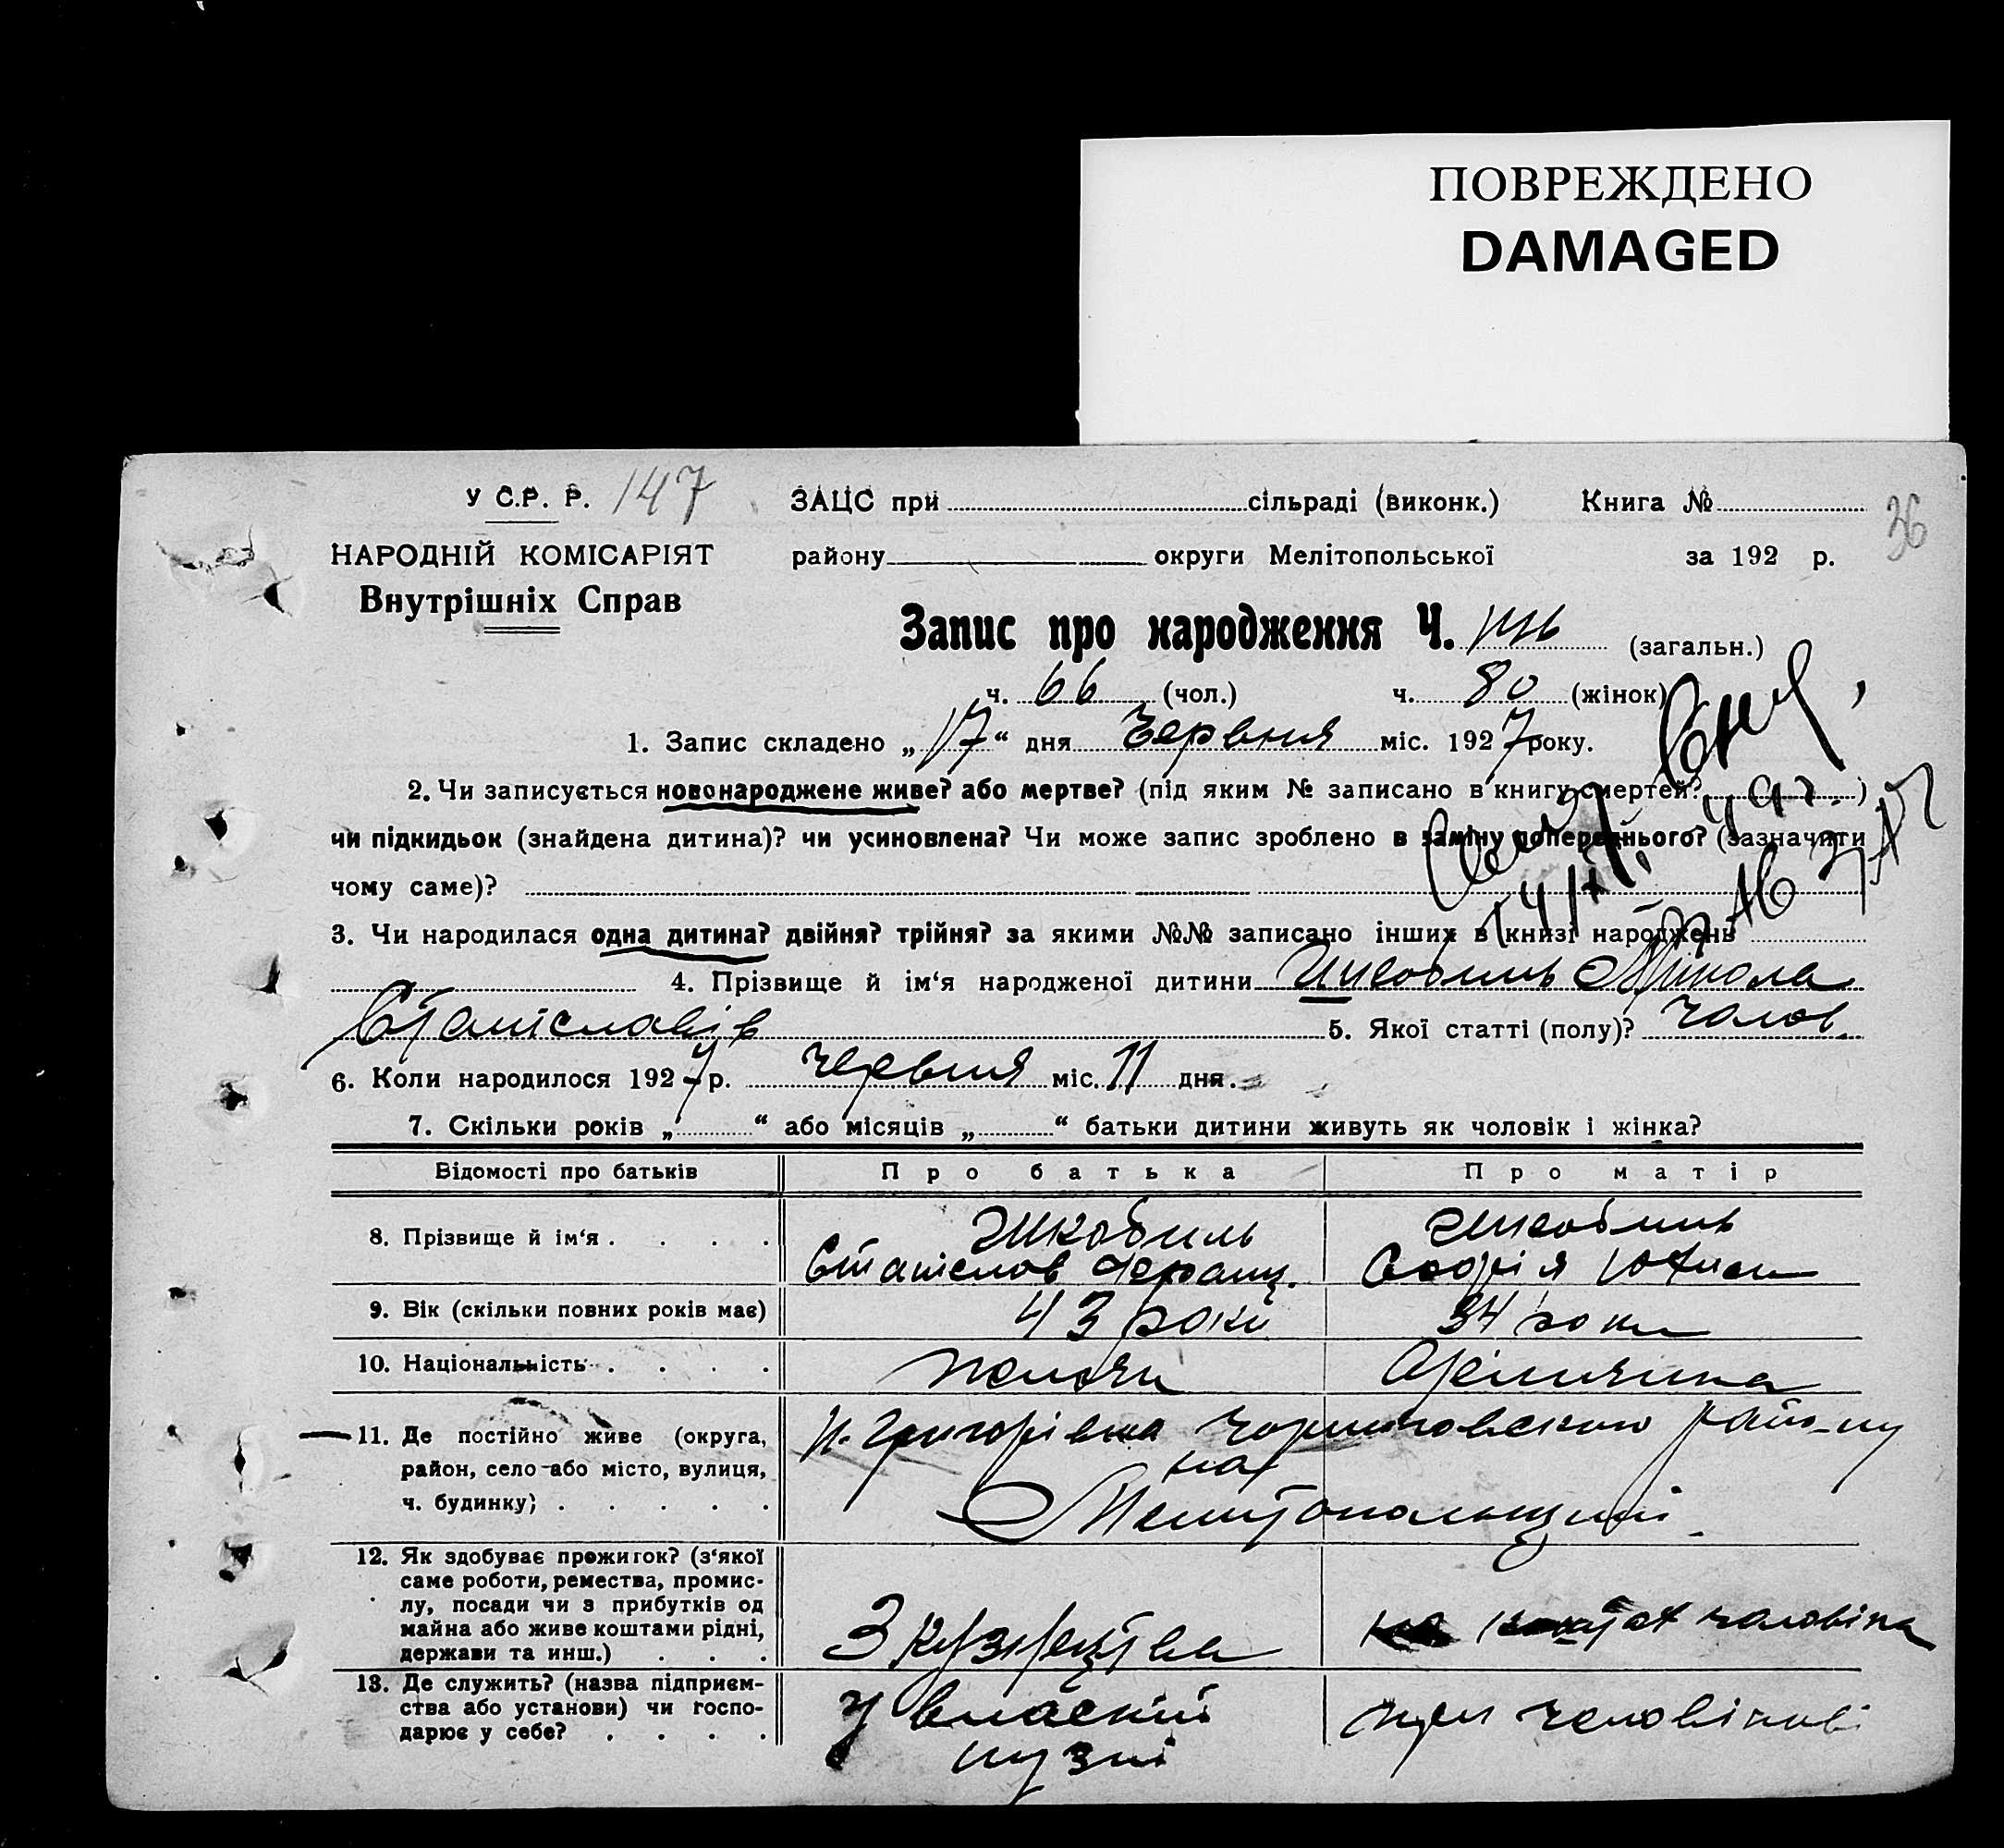 ПОВРЕЖДЕНО
DAMAGED
У С.Р. Р. 147 ЗАЦС при сільраді (виконк.) Книга № 36
НАРОДНІЙ КОМІСАРІЯТ району округи Мелітопольської за 192 р.
Внутрішніх Справ
Запис про народження Ч. 146 (загальн.)
ч. 66 (чол.) ч. 80 (жінок)
1. Запис складено „17“ дня Червня міс. 1927 року.
2. Чи записується новонароджене живе? або мертве? (під яким № записано в книгу смертей? )
чи підкидьок (знайдена дитина)? чи усиновлена? Чи може запис зроблено в заміну попереднього? (зазначити
чому саме)?
3. Чи народилася одна дитина? двійня? трійня? за якими №№ записано інших в книзі народжень
4. Прізвище й ім‘я народженої дитини Шкобиль Микола
Станіславів 5. Якої статті (полу)? Чолов.
6. Коли народилося 1927 р. червня міс. 11 дня.
7. Скільки років „ “ або місяців „ “ батьки дитини живуть як чоловік і жінка?
Відомості про батьків Про батька Про матір
8. Прізвище й ім‘я . . . . Шкобиль Шкобиль
Станіслов Франц. Софія
9. Вік (скільки повних років має) 43 роки 34 роки
10. Національність . . . . поляк Німкиня
11. Де постійно живе (округа, Григорівка района
район, село або місто, вулиця, на
ч. будинку) . . . . . Мелітопольщині.
12. Як здобуває прожиток? (з‘якої
саме роботи, ремества, промис-
лу, посади чи з прибутків од
майна або живе коштами рідні, З кузнецтва на чоловіка
держави та инш.) . . .
13. Де служить? (назва підприєм-
ства або установи) чи госпо- У власній при чоловікові
дарює у себе? . . . . кузні